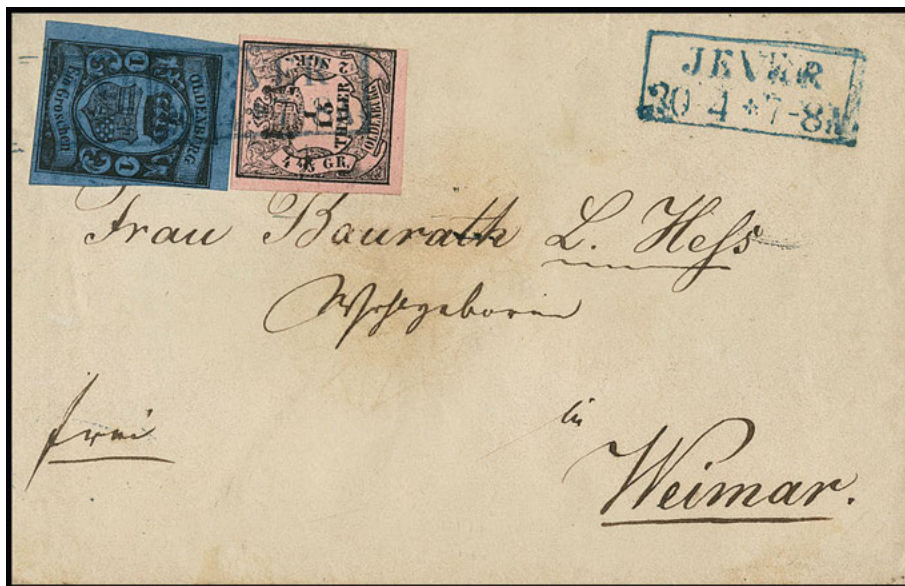 OLDENBURG
Ein Groschen
1
1
2 SGR.
OLDENBURG
1/15
THALER
4 4/5 GR.
JEVER
30 4 * 7-8
Frau Baurath L. Heſs
Wohlgeboren
frei
in
Weimar.